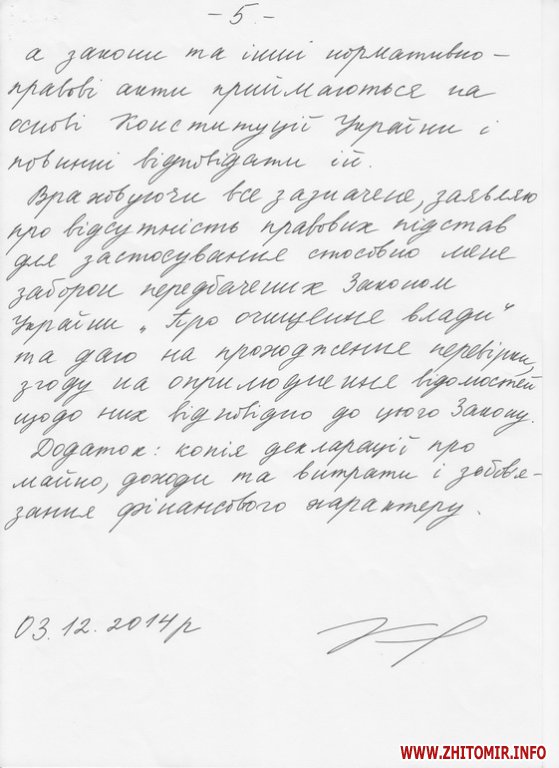 - 5 -
а закони та інші нормативно-
правові акти приймаються на
основі Конституції України і
повинні відповідати їй.
Враховуючи все зазначене, заявляю
про відсутність правових підстав
для застосування стосовно мене
заборон передбачених Законом
України „Про очищення влади"
та даю на проходження перевірки,
згоду на оприлюднення відомостей
щодо них відповідно до цього Закону.
Додаток: копія декларації про
майно, доходи та витрати і зобов'я-
зання фінансового характеру.
03.12.2014р
WWW.ZHITOMIR.INFO